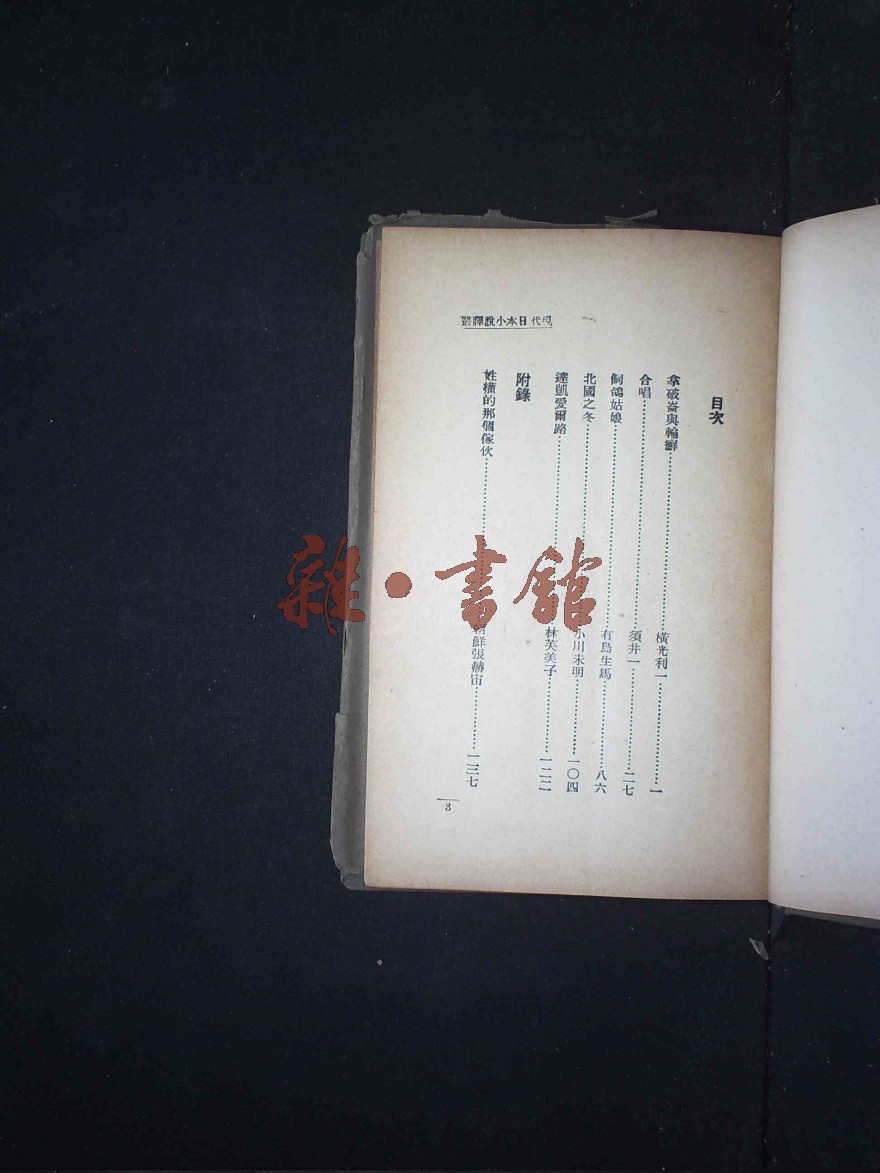 現代日本小說譯叢
目次
拿破崙與輪癬……橫光利一……一
合唱……須井一……二七
飼鴿姑娘……有島生馬……八六
北國之冬……小川未明……一〇四
達凱愛爾路……林芙美子……一二二
附錄
姓權的那個傢伙……朝鮮張赫宙……一三七
3
雜·書館